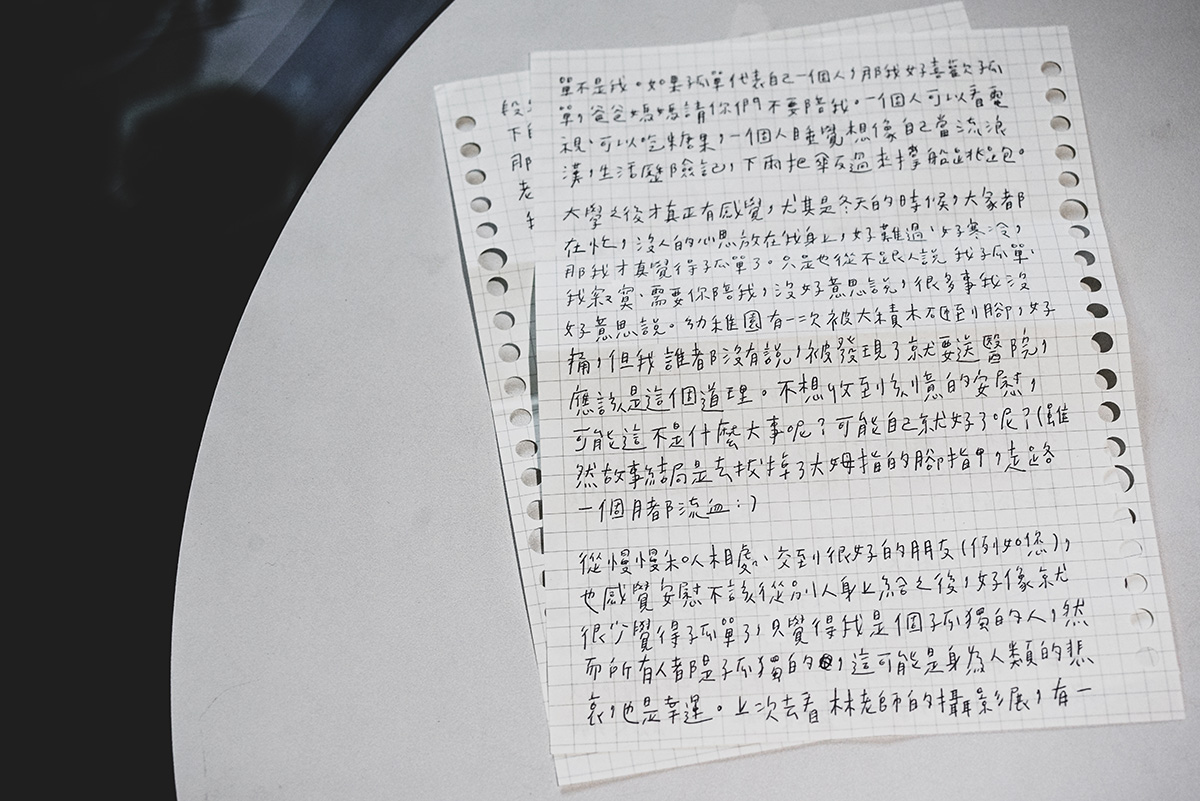 單不是我。如果孤單代表自己一個人，那我好喜歡孤
單，爸爸媽媽請你們不要陪我。一個人可以看電
視、可以吃糖果，一個人睡覺想像自己當流浪
漢，生活歷險記，下雨把傘反過來撐船跑跑。
大學之後才真正有感覺，尤其是冬天的時候，大家都
在忙，沒人的心思放在我身上，好難過、好寒冷，
那我才真覺得孤單了。只是也從不跟人說 我好孤單、
我寂寞、需要你陪我，沒好意思說，很多事我沒
好意思說。幼稚園有一次被大積木砸到腳，好
痛，但我誰都沒有說，被發現了就要送醫院，
應該是這個道理。不想收到刻意的安慰，
可能這不是什麼大事呢？可能自己就好了呢？(雖
然故事結局是去拔掉了大姆指的腳指甲，走路
一個月都流血：)
從慢慢和人相處、交到很好的朋友(例如您)，
也感覺安慰不該從別人身上給之後，好像就
很少覺得孤單了，只覺得我是個孤獨的人，然
而所有人都是孤獨的，這可能是身為人類的悲
哀，也是幸運。上次去看林老師的攝影展，有一
段
下
那
老